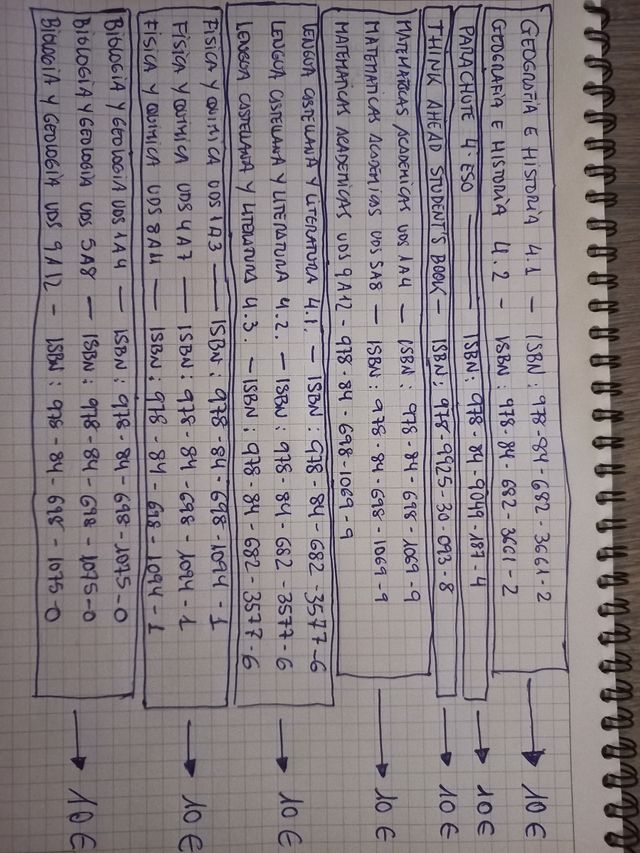 GEOGRAFIA E HISTORIA 4.1 — ISBN: 978-84-682-3661-2
GEOGRAFIA E HISTORIA 4.2 - ISBN: 978-84-682-3661-2 → 10€
PARACHUTE 4·ESO — ISBN: 978-84-9048-187-4 → 10€
THINK AHEAD STUDENT'S BOOK — ISBN: 978-9925-30-093-8 → 10€
MATEMATICAS ACADEMICAS UDS 1A4 — ISBN: 978-84-698-1069-9
MATEMATICAS ACADEMICAS UDS 5A8 — ISBN: 978-84-698-1069-9 → 10€
MATEMATICAS ACADEMICAS UDS 9A12 - 978-84-698-1069-9
LENGUA CASTELLANA Y LITERATURA 4.1. — ISBN: 978-84-682-3577-6
LENGUA CASTELLANA Y LITERATURA 4.2. — ISBN: 978-84-682-3577-6 → 10€
LENGUA CASTELLANA Y LITERATURA 4.3. — ISBN: 978-84-682-3577-6
FISICA Y QUIMICA UDS 1A3 — ISBN: 978-84-698-1094-1
FISICA Y QUIMICA UDS 4A7 — ISBN: 978-84-698-1094-1 → 10€
FISICA Y QUIMICA UDS 8A11 — ISBN: 978-84-698-1094-1
BIOLOGIA Y GEOLOGIA UDS 1A4 — ISBN: 978-84-698-1075-0
BIOLOGIA Y GEOLOGIA UDS 5A8 — ISBN: 978-84-698-1075-0 → 10€
BIOLOGIA Y GEOLOGIA UDS 9A12 - ISBN: 978-84-698-1075-0